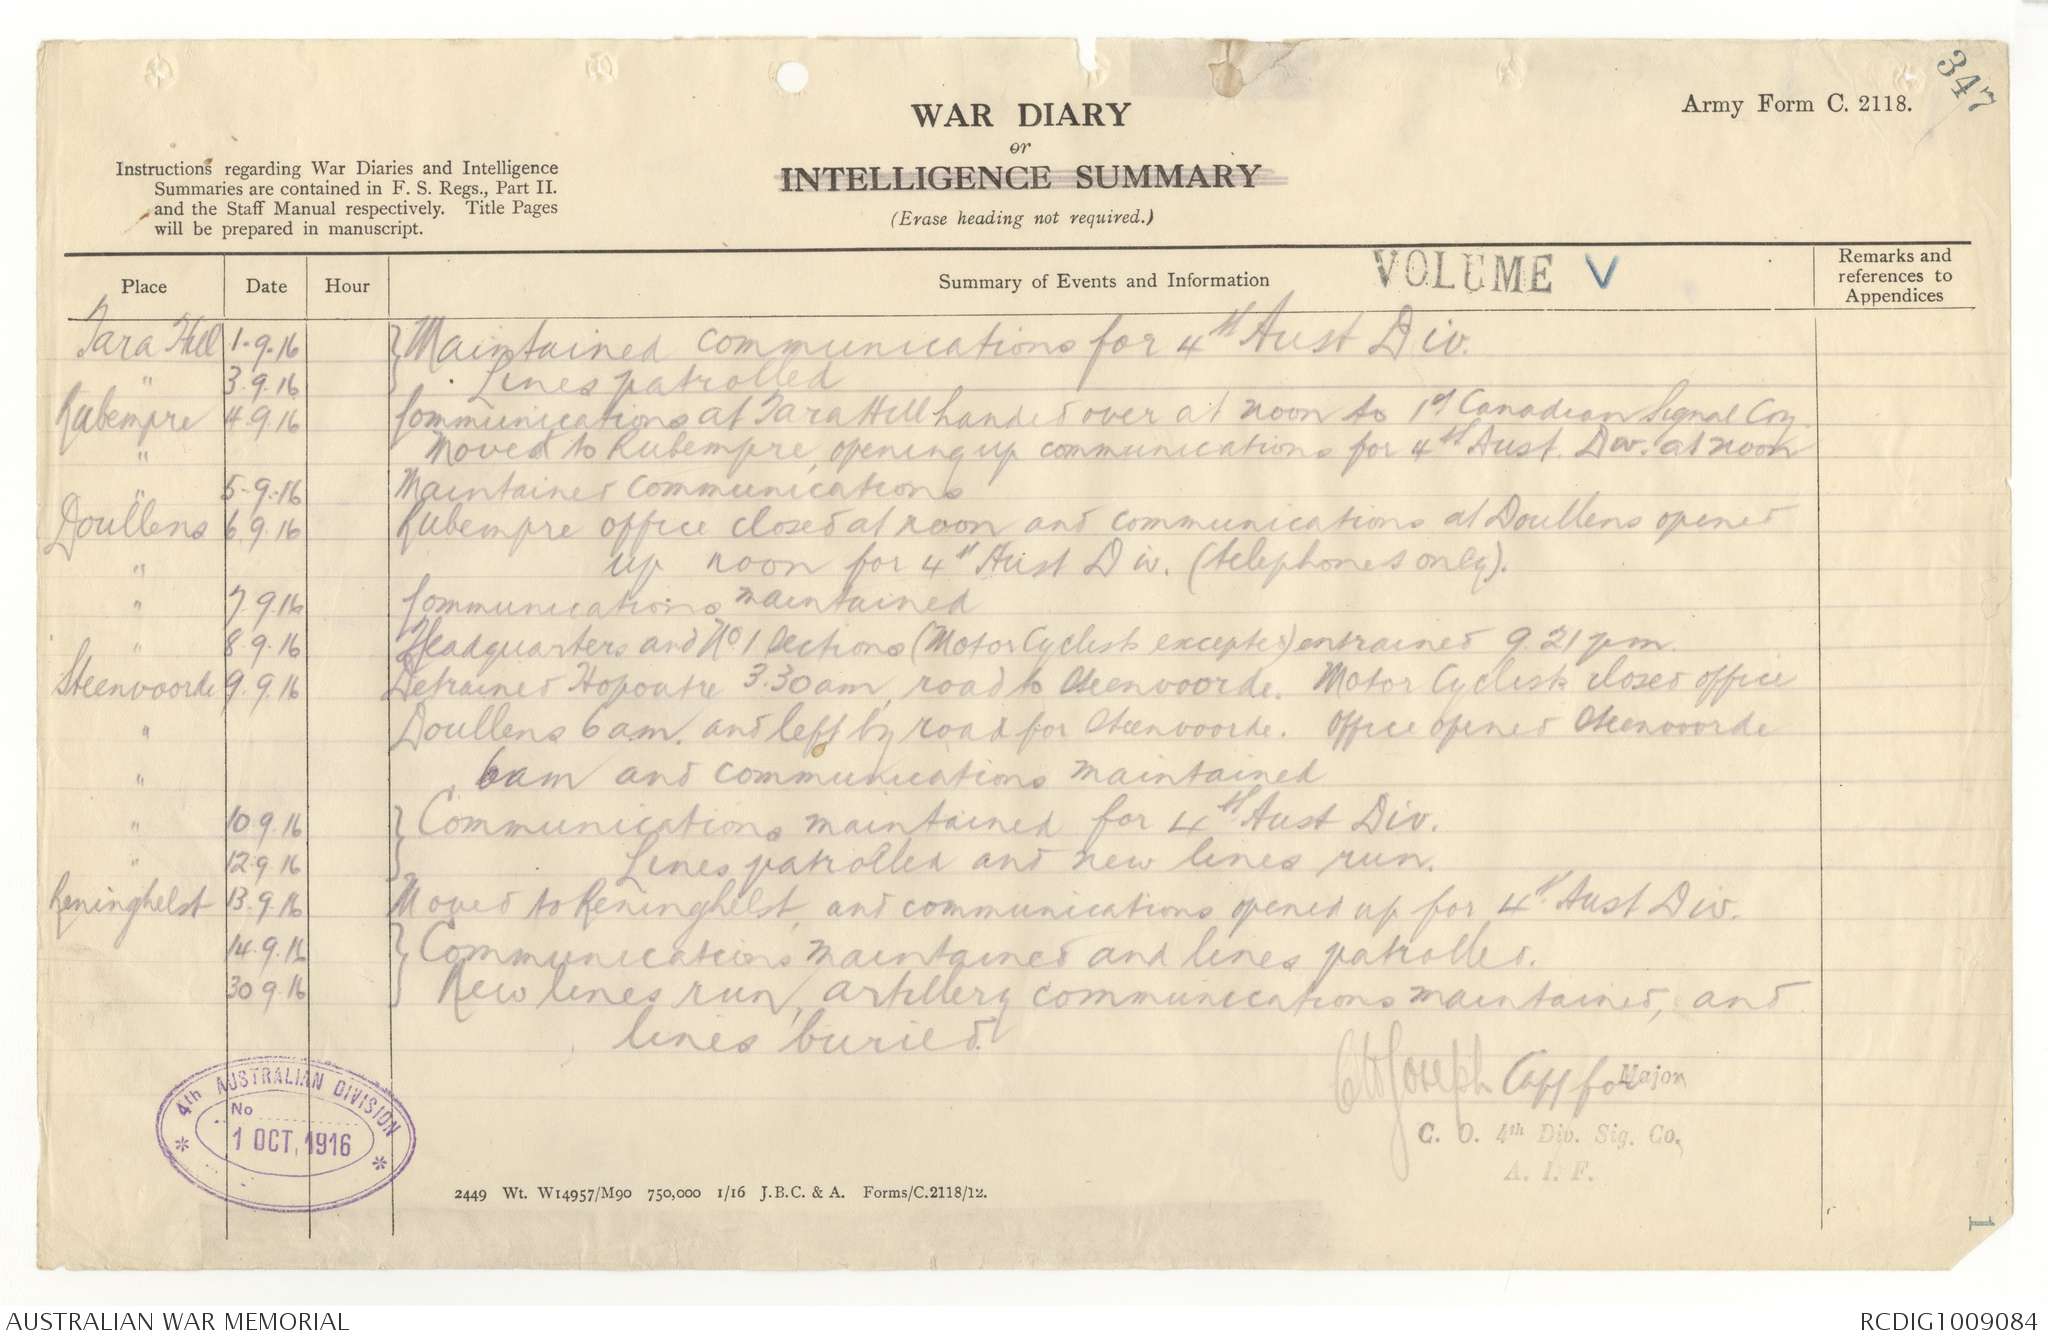 347
Army Form C. 2118.
WAR DIARY
or
INTELLIGENCE SUMMARY
(Erase heading not required.)
Instructions regarding War Diaries and Intelligence
Summaries are contained in F. S. Regs., Part II.
and the Staff Manual respectively. Title Pages
will be prepared in manuscript.
Place Date Hour Summary of Events and Information VOLUME V Remarks and references to Appendices
Tara Hill 1.9.16 } Maintained communications for 4th Aust Div.
" 3.9.16 } Lines patrolled
Rubempre 4.9.16 Communications at Tara Hill handed over at noon to 1st Canadian Signal Coy.
" Moved to Rubempre, opening up communications for 4th Aust. Div. at noon
" 5.9.16 Maintained communications
Doullens 6.9.16 Rubempre office closed at noon and communications at Doullens opened
" up noon for 4th Aust Div. (telephones only).
" 7.9.16 Communications maintained
" 8.9.16 Headquarters and No 1 Sections (Motor Cyclists excepted) entrained 9.21 pm.
Steenvoorde 9.9.16 Detrained Hopoutre 3.30am, road to Steenvoorde. Motor Cyclists closed office
" Doullens 6am. and left by road for Steenvoorde. Office opened Steenvoorde
" 6am and communications maintained
" 10.9.16 } Communications maintained for 4th Aust Div.
" 12.9.16 } Lines patrolled and new lines run.
Reninghelst 13.9.16 Moved to Reninghelst, and communications opened up for 4th Aust Div.
14.9.16 } Communications maintained and lines patrolled.
30.9.16 } New lines run, artillery communications maintained, and
lines buried.
CW Joseph Capt for Major
C. O. 4th Div. Sig. Co,
A. I. F.
4th AUSTRALIAN DIVISION
No
1 OCT, 1916
2449 Wt. W14957/M90 750,000 1/16 J.B.C. & A. Forms/C.2118/12.
1
AUSTRALIAN WAR MEMORIAL
RCDIG1009084